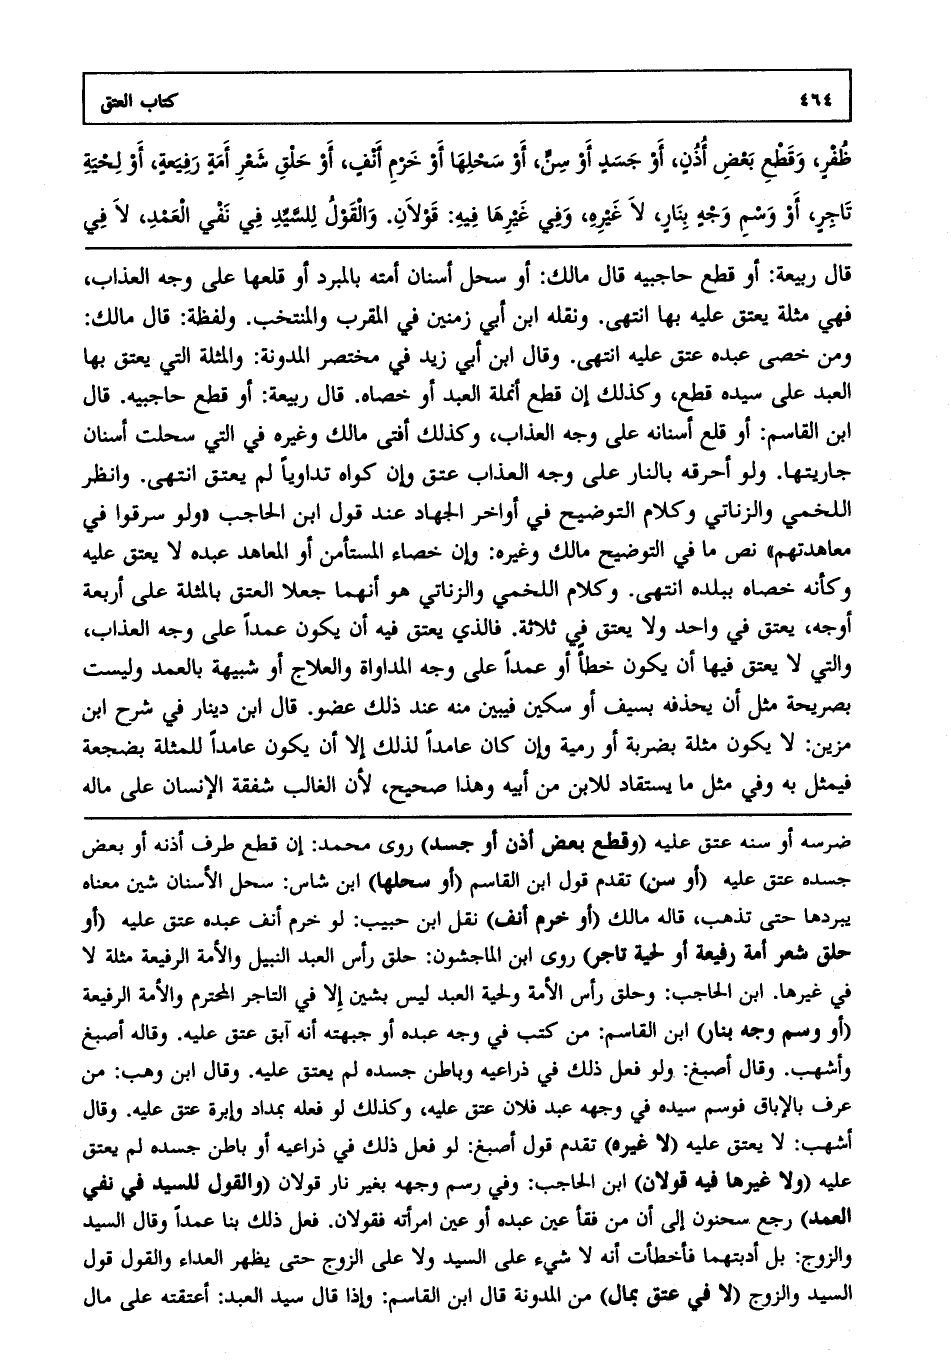 ٤٦٤ كتاب العتق
ظُفْرٍ، وَقَطْعِ بَعْضِ أُذُنٍ، أَوْ جَسَدٍ أَوْ سِنٍّ، أَوْ سَحْلِهَا أَوْ خَرْمِ أَنْفٍ، أَوْ حَلْقِ شَعْرِ أَمَةٍ رَفِيعَةٍ، أَوْ لِحْيَةِ
تَاجِرٍ، أَوْ وَسْمِ وَجْهٍ بِنَارٍ، لاَ غَيْرِهِ، وَفِي غَيْرِهَا فِيهِ: قَوْلاَنِ. وَالْقَوْلُ لِلسَّيِّدِ فِي نَفْيِ الْعَمْدِ، لاَ فِي
قال ربيعة: أو قطع حاجبيه قال مالك: أو سحل أسنان أمته بالمبرد أو قلعها على وجه العذاب،
فهي مثلة يعتق عليه بها انتهى. ونقله ابن أبي زمنين في المقرب والمنتخب. ولفظة: قال مالك:
ومن خصى عبده عتق عليه انتهى. وقال ابن أبي زيد في مختصر المدونة: والمثلة التي يعتق بها
العبد على سيده قطع، وكذلك إن قطع أنملة العبد أو خصاه. قال ربيعة: أو قطع حاجبيه. قال
ابن القاسم: أو قلع أسنانه على وجه العذاب، وكذلك أفتى مالك وغيره في التي سحلت أسنان
جاريتها. ولو أحرقه بالنار على وجه العذاب عتق وإن كواه تداوياً لم يعتق انتهى. وانظر
اللخمي والزناتي وكلام التوضيح في أواخر الجهاد عند قول ابن الحاجب «ولو سرقوا في
معاهدتهم» نص ما في التوضيح مالك وغيره: وإن خصاء المستأمن أو المعاهد عبده لا يعتق عليه
وكأنه خصاه ببلده انتهى. وكلام اللخمي والزناتي هو أنهما جعلا العتق بالمثلة على أربعة
أوجه، يعتق في واحد ولا يعتق في ثلاثة. فالذي يعتق فيه أن يكون عمداً على وجه العذاب،
والتي لا يعتق فيها أن يكون خطأً أو عمداً على وجه المداواة والعلاج أو شبيهة بالعمد وليست
بصريحة مثل أن يحذفه بسيف أو سكين فيبين منه عند ذلك عضو. قال ابن دينار في شرح ابن
مزين: لا يكون مثلة بضربة أو رمية وإن كان عامداً لذلك إلا أن يكون عامداً للمثلة بضجعة
فيمثل به وفي مثل ما يستقاد للابن من أبيه وهذا صحيح، لأن الغالب شفقة الإنسان على ماله
ضرسه أو سنه عتق عليه (وقطع بعض أذن أو جسد) روى محمد: إن قطع طرف أذنه أو بعض
جسده عتق عليه (أو سن) تقدم قول ابن القاسم (أو سحلها) ابن شاس: سحل الأسنان شين معناه
يبردها حتى تذهب، قاله مالك (أو خرم أنف) نقل ابن حبيب: لو خرم أنف عبده عتق عليه (أو
حلق شعر أمة رفيعة أو لحية تاجر) روى ابن الماجشون: حلق رأس العبد النبيل والأمة الرفيعة مثلة لا
في غيرها. ابن الحاجب: وحلق رأس الأمة ولحية العبد ليس بشين إلا في التاجر المحترم والأمة الرفيعة
(أو وسم وجه بنار) ابن القاسم: من كتب في وجه عبده أو جبهته أنه آبق عتق عليه. وقاله أصبغ
وأشهب. وقال أصبغ: ولو فعل ذلك في ذراعيه وباطن جسده لم يعتق عليه. وقال ابن وهب: من
عرف بالإباق فوسم سيده في وجهه عبد فلان عتق عليه، وكذلك لو فعله بمداد وإبرة عتق عليه. وقال
أشهب: لا يعتق عليه (لا غيره) تقدم قول أصبغ: لو فعل ذلك في ذراعيه أو باطن جسده لم يعتق
عليه (ولا غيرها فيه قولان) ابن الحاجب: وفي رسم وجهه بغير نار قولان (والقول للسيد في نفي
العمد) رجع سحنون إلى أن من فقأ عين عبده أو عين امرأته فقولان. فعل ذلك بنا عمداً وقال السيد
والزوج: بل أدبتهما فأخطأت أنه لا شيء على السيد ولا على الزوج حتى يظهر العداء والقول قول
السيد والزوج (لا في عتق بمال) من المدونة قال ابن القاسم: وإذا قال سيد العبد: أعتقته على مال